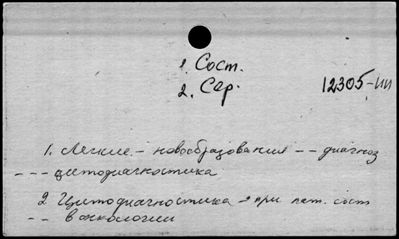 1. Сост.
2. Сер.
12305-ш
1. Легкие - новообразования -- диагноз
--- цитодиагностика
2. Цитодиагностика - при пат. сост
-- в онкологии